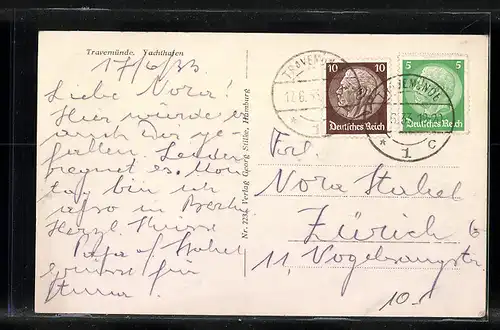 Travemünde. Yachthafen
17/6/33
Liebe Nora!
Hier würde es
auch Dir ge-
fallen. Leider
regnet es. Mon-
tag bin ich
also in Berlin
Herzl. Grüsse
Papa
für
Nr. 2234 Verlag Georg Stilke, Hamburg
TRAVEMÜNDE
17.6.33
* 1
10 10
Deutsches Reich
5 5
Deutsches Reich
* 1 c
Frl.
Nora
Zürich 6
11, Vogelsangstr.
10.-